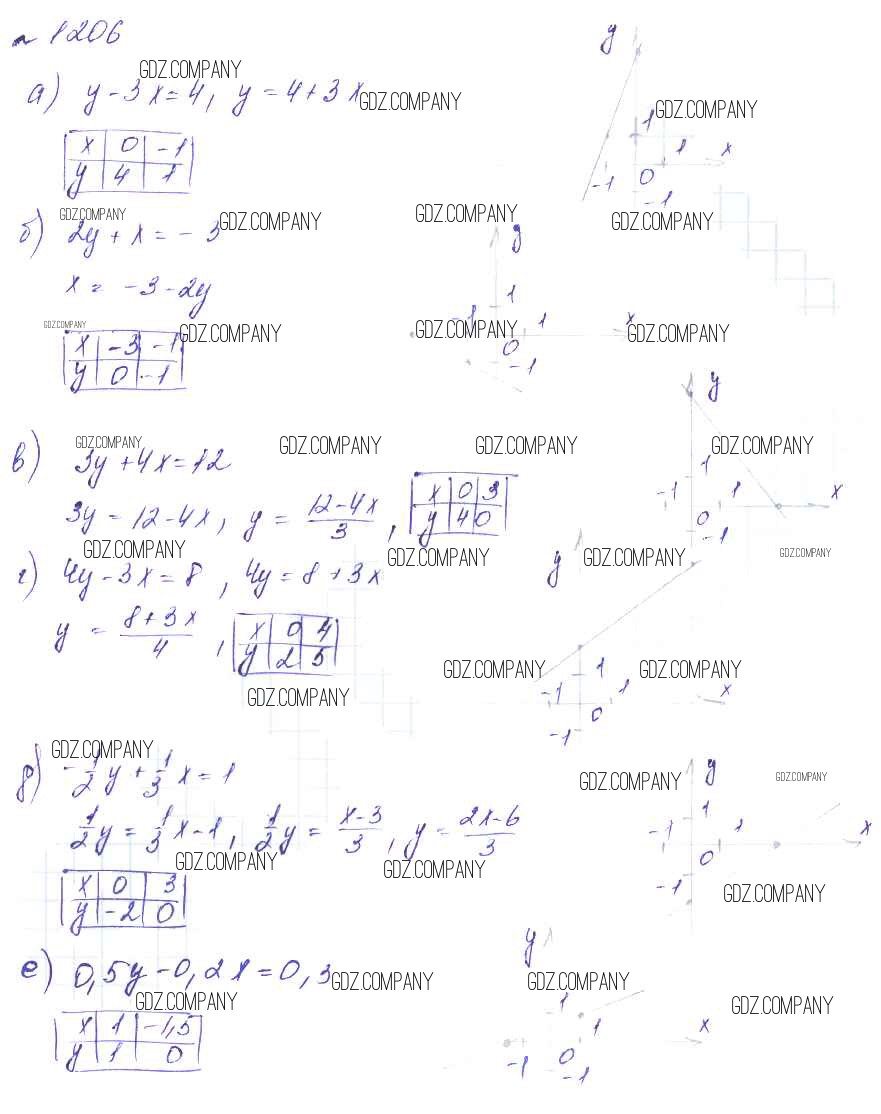 № 1206
GDZ.COMPANY
а) y - 3x = 4, y = 4 + 3x
GDZ.COMPANY
GDZ.COMPANY
x 0 -1
y 4 1
y
1
1 x
-1 0
-1
GDZ.COMPANY
GDZ.COMPANY
GDZ.COMPANY
GDZ.COMPANY
б) 2y + x = -3
x = -3 - 2y
GDZ.COMPANY
GDZ.COMPANY
GDZ.COMPANY
GDZ.COMPANY
x -3 -1
y 0 -1
y
1
-1 1 x
0
-1
GDZ.COMPANY
GDZ.COMPANY
GDZ.COMPANY
GDZ.COMPANY
в) 3y + 4x = 12
3y = 12 - 4x, y = (12 - 4x)/3,
x 0 3
y 4 0
y
1
-1 1 x
0
-1
GDZ.COMPANY
GDZ.COMPANY
GDZ.COMPANY
GDZ.COMPANY
г) 4y - 3x = 8, 4y = 8 + 3x
y = (8 + 3x)/4,
x 0 4
y 2 5
y
1
-1 1 x
0
-1
GDZ.COMPANY
GDZ.COMPANY
GDZ.COMPANY
GDZ.COMPANY
GDZ.COMPANY
GDZ.COMPANY
д) -1/2 y + 1/3 x = 1
1/2 y = 1/3 x - 1, 1/2 y = (x - 3)/3, y = (2x - 6)/3
GDZ.COMPANY
GDZ.COMPANY
GDZ.COMPANY
x 0 3
y -2 0
y
1
-1 1 x
0
-1
е) 0,5y - 0,2x = 0,3
GDZ.COMPANY
GDZ.COMPANY
GDZ.COMPANY
GDZ.COMPANY
x 1 -1,5
y 1 0
y
1
1 x
-1 0
-1